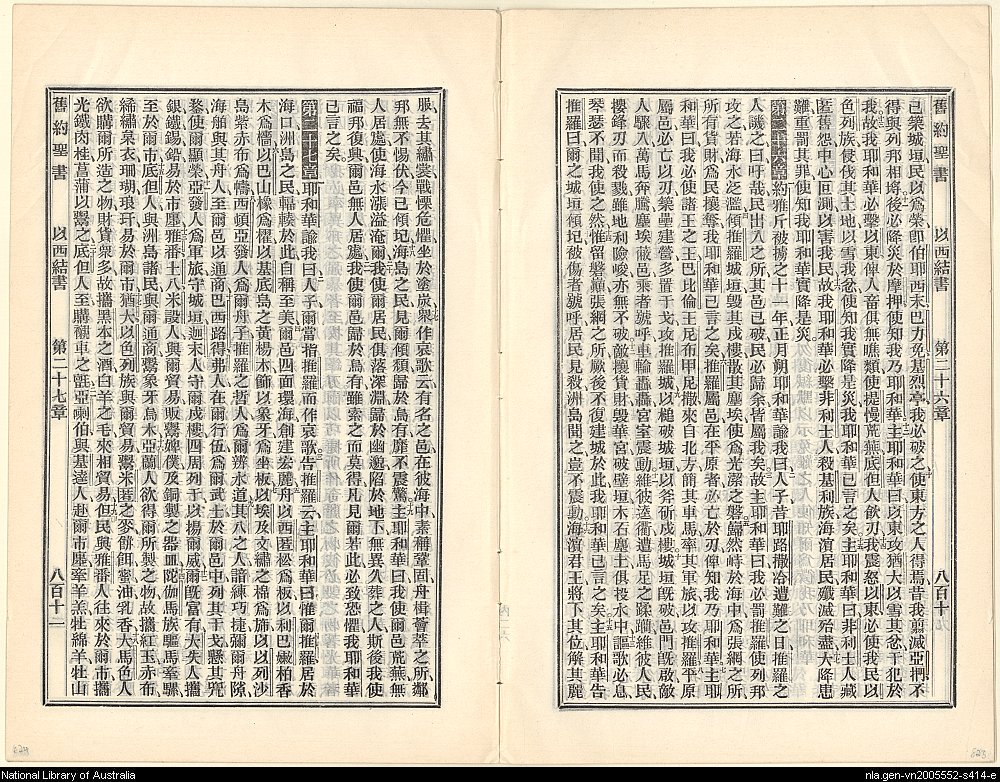 舊約聖書 以西結書 第二十六章 八百十九
已築城垣民以爲榮卽伯耶西末巴力免基烈亭我必破之使東方之人得焉昔我翦滅亞捫不
得與列邦相埒後必降災於摩押使知我乃耶和華主耶和華曰以東攻猶大以雪其忿干犯於
我故我耶和華必擊以東俾人畜俱無噍類使提慢荒蕪底但人飲刃我震怒以東必使我民以
色列族侵伐其土地以雪我忿使知我實降是災我耶和華已言之矣主耶和華曰非利士人藏
匿舊怨中心叵測以害我民故我耶和華必擊非利士人殺基利族海濱居民殲滅殆盡大降患
難重罰其罪使知我耶和華實降是災
第二十六章約雅斤被擄之十一年正月朔耶和華諭我曰人子昔耶路撒冷遭難之日推羅之
人譏之曰吁哉民出入之所其邑已破民必歸余皆屬我矣故主耶和華曰我必罰推羅使列邦
攻之若海水泛濫傾推羅城垣毀其戍樓散其塵埃使爲光潔之磐巋然峙於海中爲張網之所
所有貨財爲民攘奪我耶和華已言之矣推羅屬邑在平原者必亡於刃俾知我乃耶和華主耶
和華曰我必使諸王之王巴比倫王尼布甲尼撒來自北方簡其車馬率其軍旅以攻推羅平原
屬邑必亡以刃築壘建營多置干戈攻推羅城垣以槌破城垣以斧斫戍樓城垣旣破邑門旣啟敵
人驟入萬馬奔騰塵埃蔽邑乘馬者號呼車輪轟轟宮室震動維彼逵衢遭馬足之蹂躪維彼人民
攖鋒刃而殺戮雖地利險峻亦無不破敵攘貨財毀華宮破壁垣木石塵土俱投水中謳歌必息
琴瑟不聞我使之然惟留磐巖張網之所厥後不復建城於此我耶和華已言之矣主耶和華告
推羅曰爾之城垣傾圮被傷者號呼居民見殺洲島聞之豈不震動海濱君王將下其位解其麗
服去其繡裳戰慄危懼坐於塗炭舉作哀歌云有名之邑在彼海中素稱鞏固舟楫薈萃之所鄰
邦無不惕伏今已傾圮海島之民見爾傾頹歸於烏有靡不震驚主耶和華曰我使爾邑荒蕪無
人居處使海水漲溢淹爾我使爾居民俱落深淵歸於幽邈陷於地下無異久葬之人斯後我使
福邦復興爾邑無人居處我使爾邑歸於烏有雖索之而莫得見爾若此必致恐懼我耶和華
已言之矣
第二十七章耶和華諭我曰人子爾當指推羅而作哀歌告推羅云主耶和華曰惟爾推羅居於
海口洲島之民輻輳於此自稱至美爾邑四面環海創建宏麗舟以西匿松爲板以利巴嫩柏香
木爲檣以巴山橡爲櫂以基底島之黃楊木飾以象牙爲坐板以埃及文繡之棉爲旆以以列沙
島紫赤布爲幬西頓亞發人爲爾舟子推羅之哲人爲爾辨水道其八之人諳練巧捷彌爾舟隙
海舶與其舟人至爾邑以通商巴西路得弗人在爾行伍爲爾武士於爾邑中列其干戈懸其兜
鍪使爾顯榮亞發人爲軍旅守城垣迦末人守爾戍樓四周列干以揚爾威爾旣富有大失人攜
銀鐵錫鉛易於市廛雅番土八米設人與爾貿易販鬻婢僕及銅製之器皿陀伽馬族驅馬牽騾
至於爾市底但人與洲島諸民與爾通商鬻象牙烏木亞蘭人欲得爾所製之物故攜紅玉赤布
絺繡枲衣珊瑚琅玕易於爾市猶大以色列族與爾貿易鬻米匿之麥餅餌蜜油乳香大馬色人
欲購爾所造之物財貨衆多故攜黑本之酒白羊之毛來相貿易但民與雅番人往來於爾市攜
光鐵肉桂菖蒲以鬻之底但人至購襯車之氈亞喇伯與基達人赴爾市廛牽羊羔牡綿羊牡山
舊約聖書 以西結書 第二十七章 八百十二
National Library of Australia
nla.gen-vn2005552-s414-e